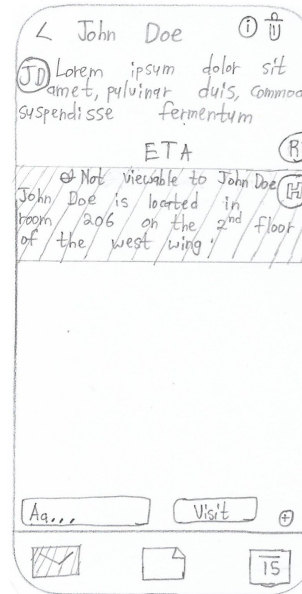 < John Doe i
JD Lorem ipsum dolor sit
amet, pulvinar duis, commod
suspendisse fermentum
ETA R
Not viewable to John Doe H
John Doe is located in
room 206 on the 2nd floor
of the west wing.
Aa... Visit +
15